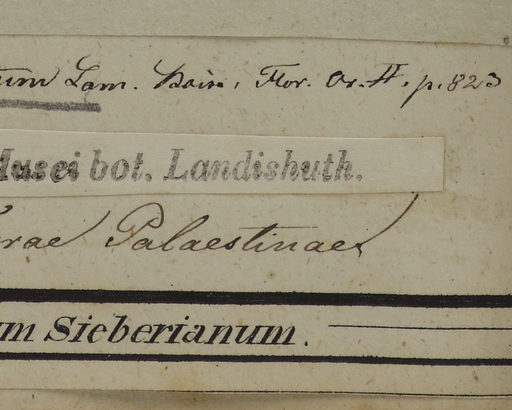 um Lam. Boiss. Flor. Or. II. p. 823
Musei bot. Landishuth.
rae Palaestinae
um Sieberianum.